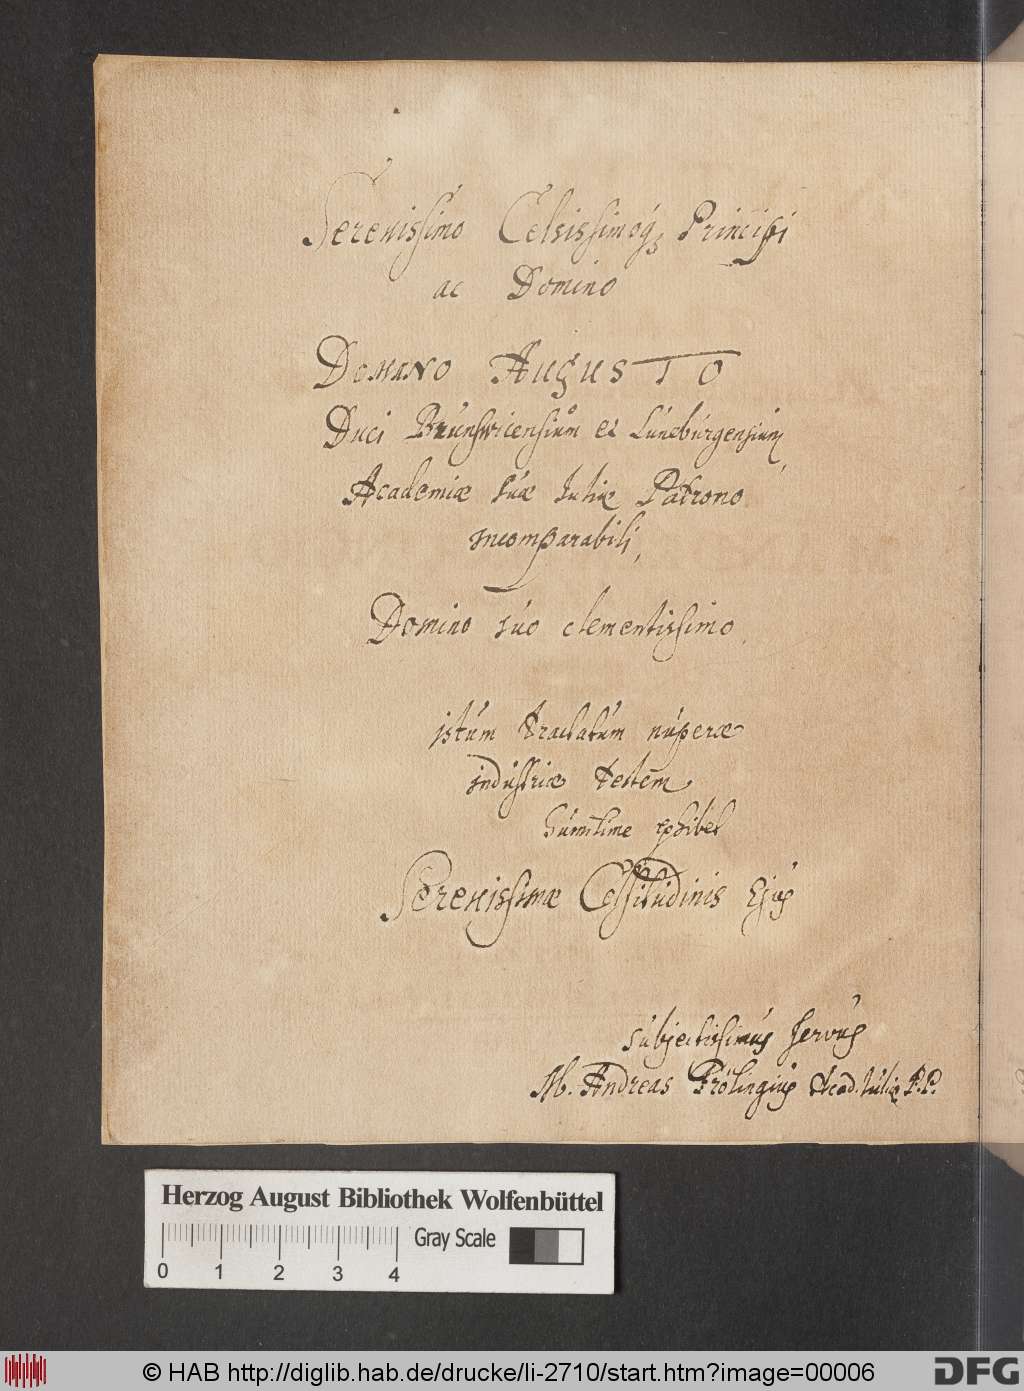 Serenissimo Celsissimoq; Principi
ac Domino
Domino Augusto
Duci Brunswicensium et Luneburgensium,
Academiæ suæ Juliæ Patrono
incomparabili,
Domino suo clementissimo
istum tractatum nuperæ
industriæ testem
humilime exhibet
Serenissimæ Celsitudinis Ejus
subjectissimus servus
M. Andreas Frölingius Acad. Juliæ P.P.
Herzog August Bibliothek Wolfenbüttel
Gray Scale
0 1 2 3 4
© HAB http://diglib.hab.de/drucke/li-2710/start.htm?image=00006
DFG